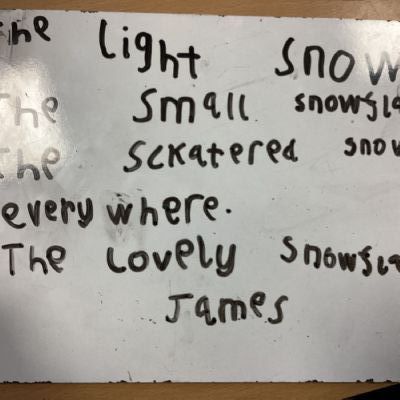 The light snow
The small snowfla
The sckatered snow
every where.
The Lovely snowfla
James